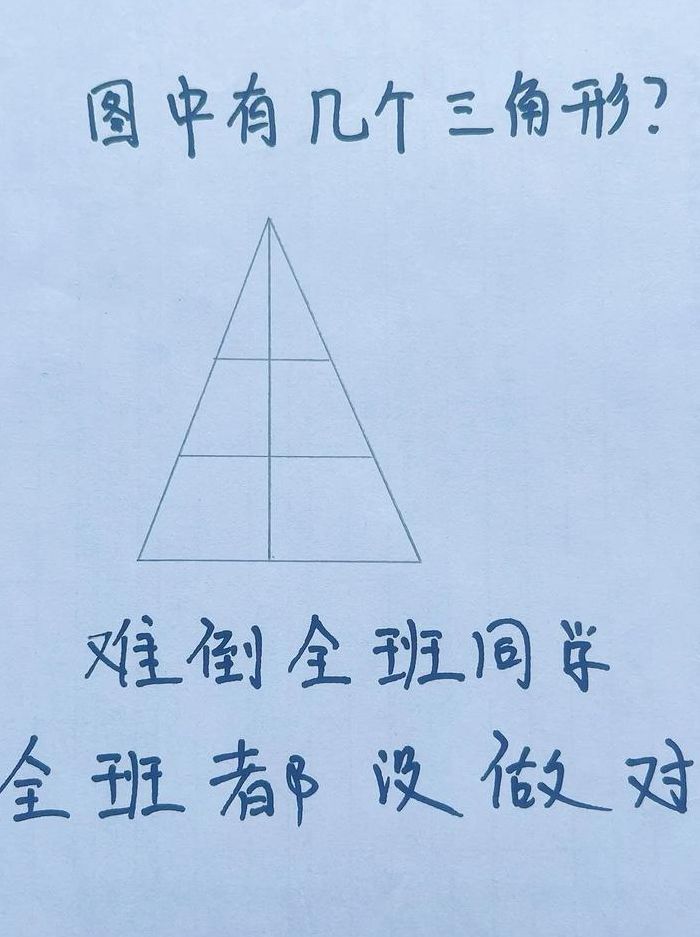 图中有几个三角形?
难倒全班同学
全班都没做对